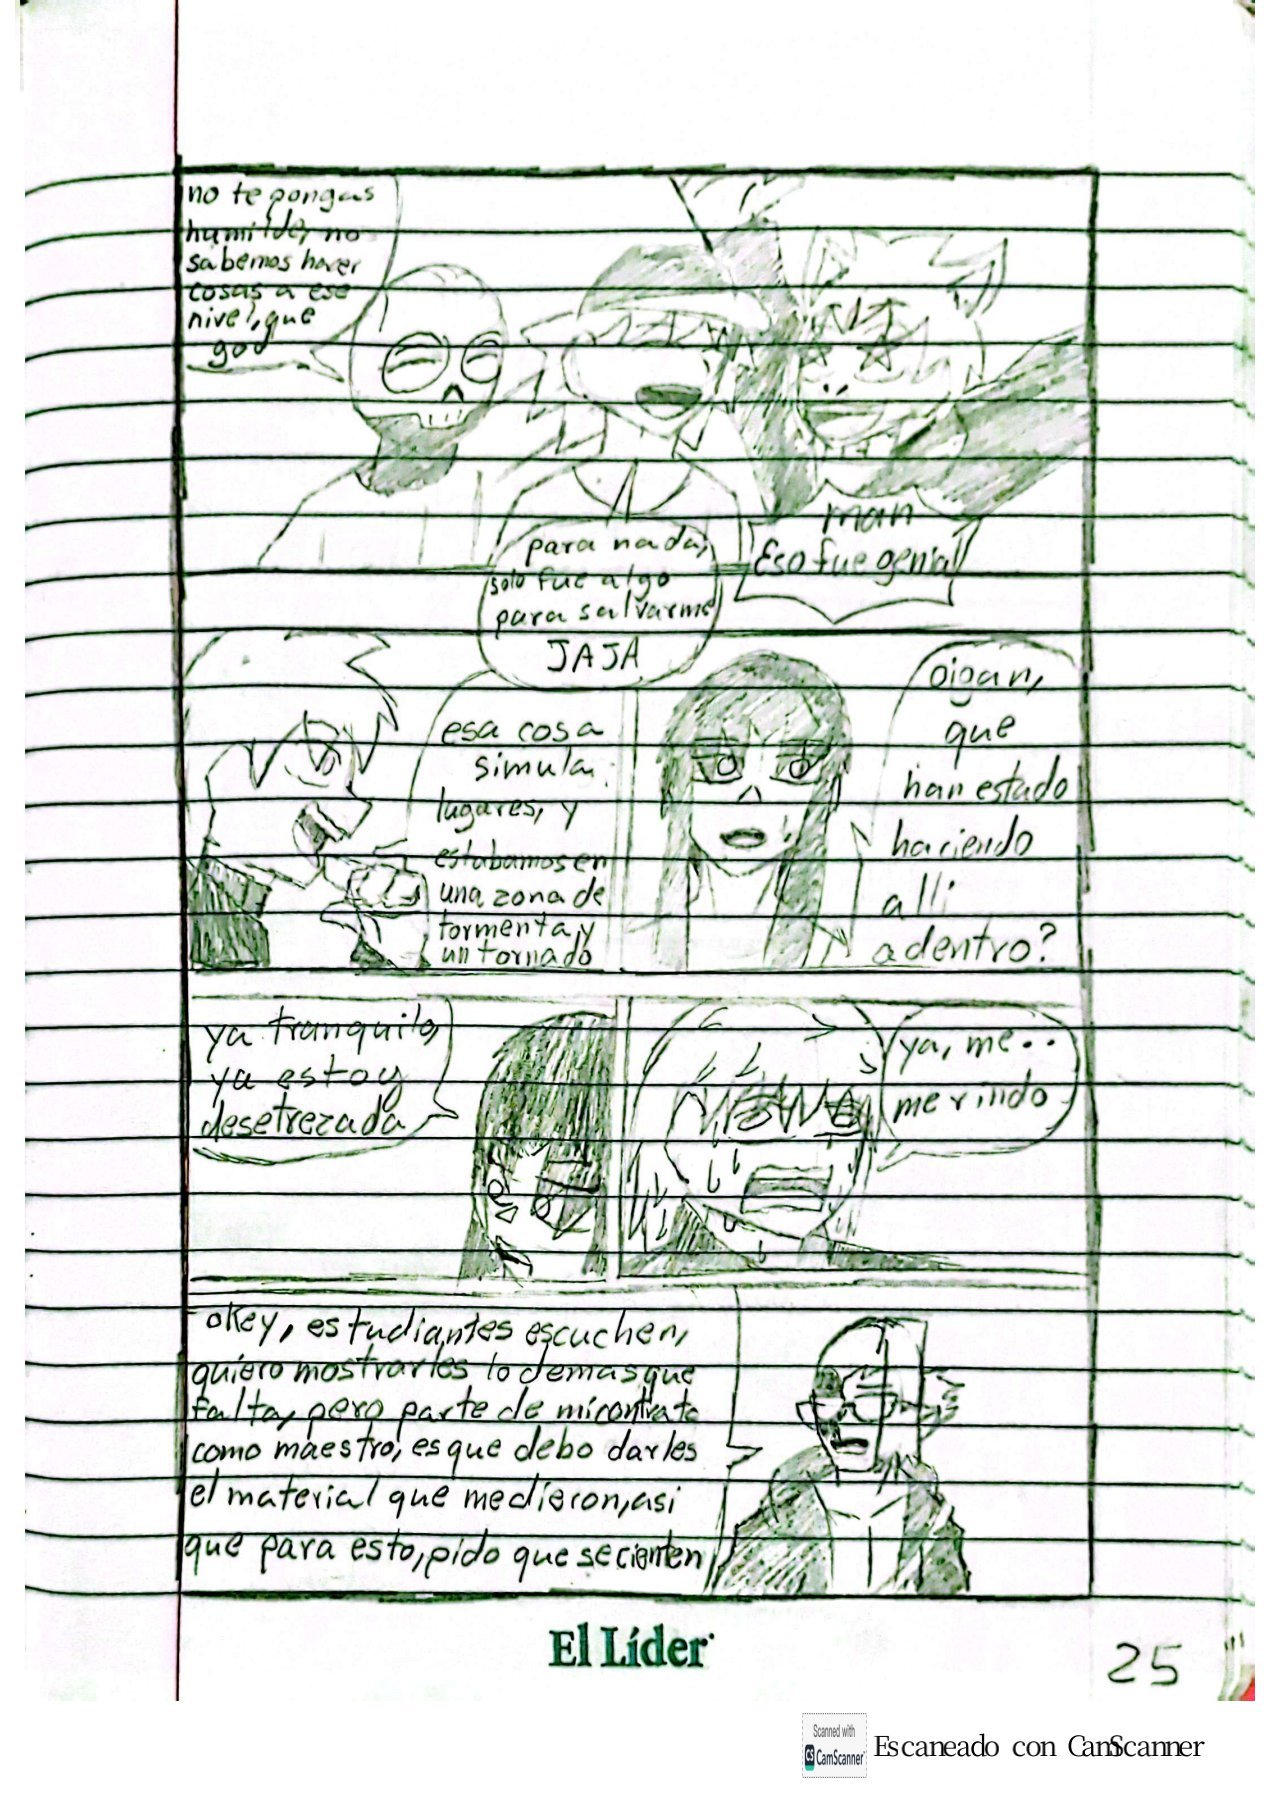 no te pongas
humilde, no
sabemos hacer
cosas a ese
nivel, que
god
man
Eso fue genial
para nada,
solo fue algo
para salvarme
JAJA
esa cosa
simula
lugares, y
estabamos en
una zona de
tormenta y
un tornado
oigan,
que
han estado
haciendo
alli
adentro?
ya tranquilo,
ya estoy
desetrezada
ya, me..
me rindo
okey, estudiantes escuchen,
quiero mostrarles lo demas que
falta, pero parte de mi contrato
como maestro, es que debo darles
el material que me dieron, asi
que para esto, pido que se cienten
El Líder
25
Scanned with
CS CamScanner
Escaneado con CamScanner